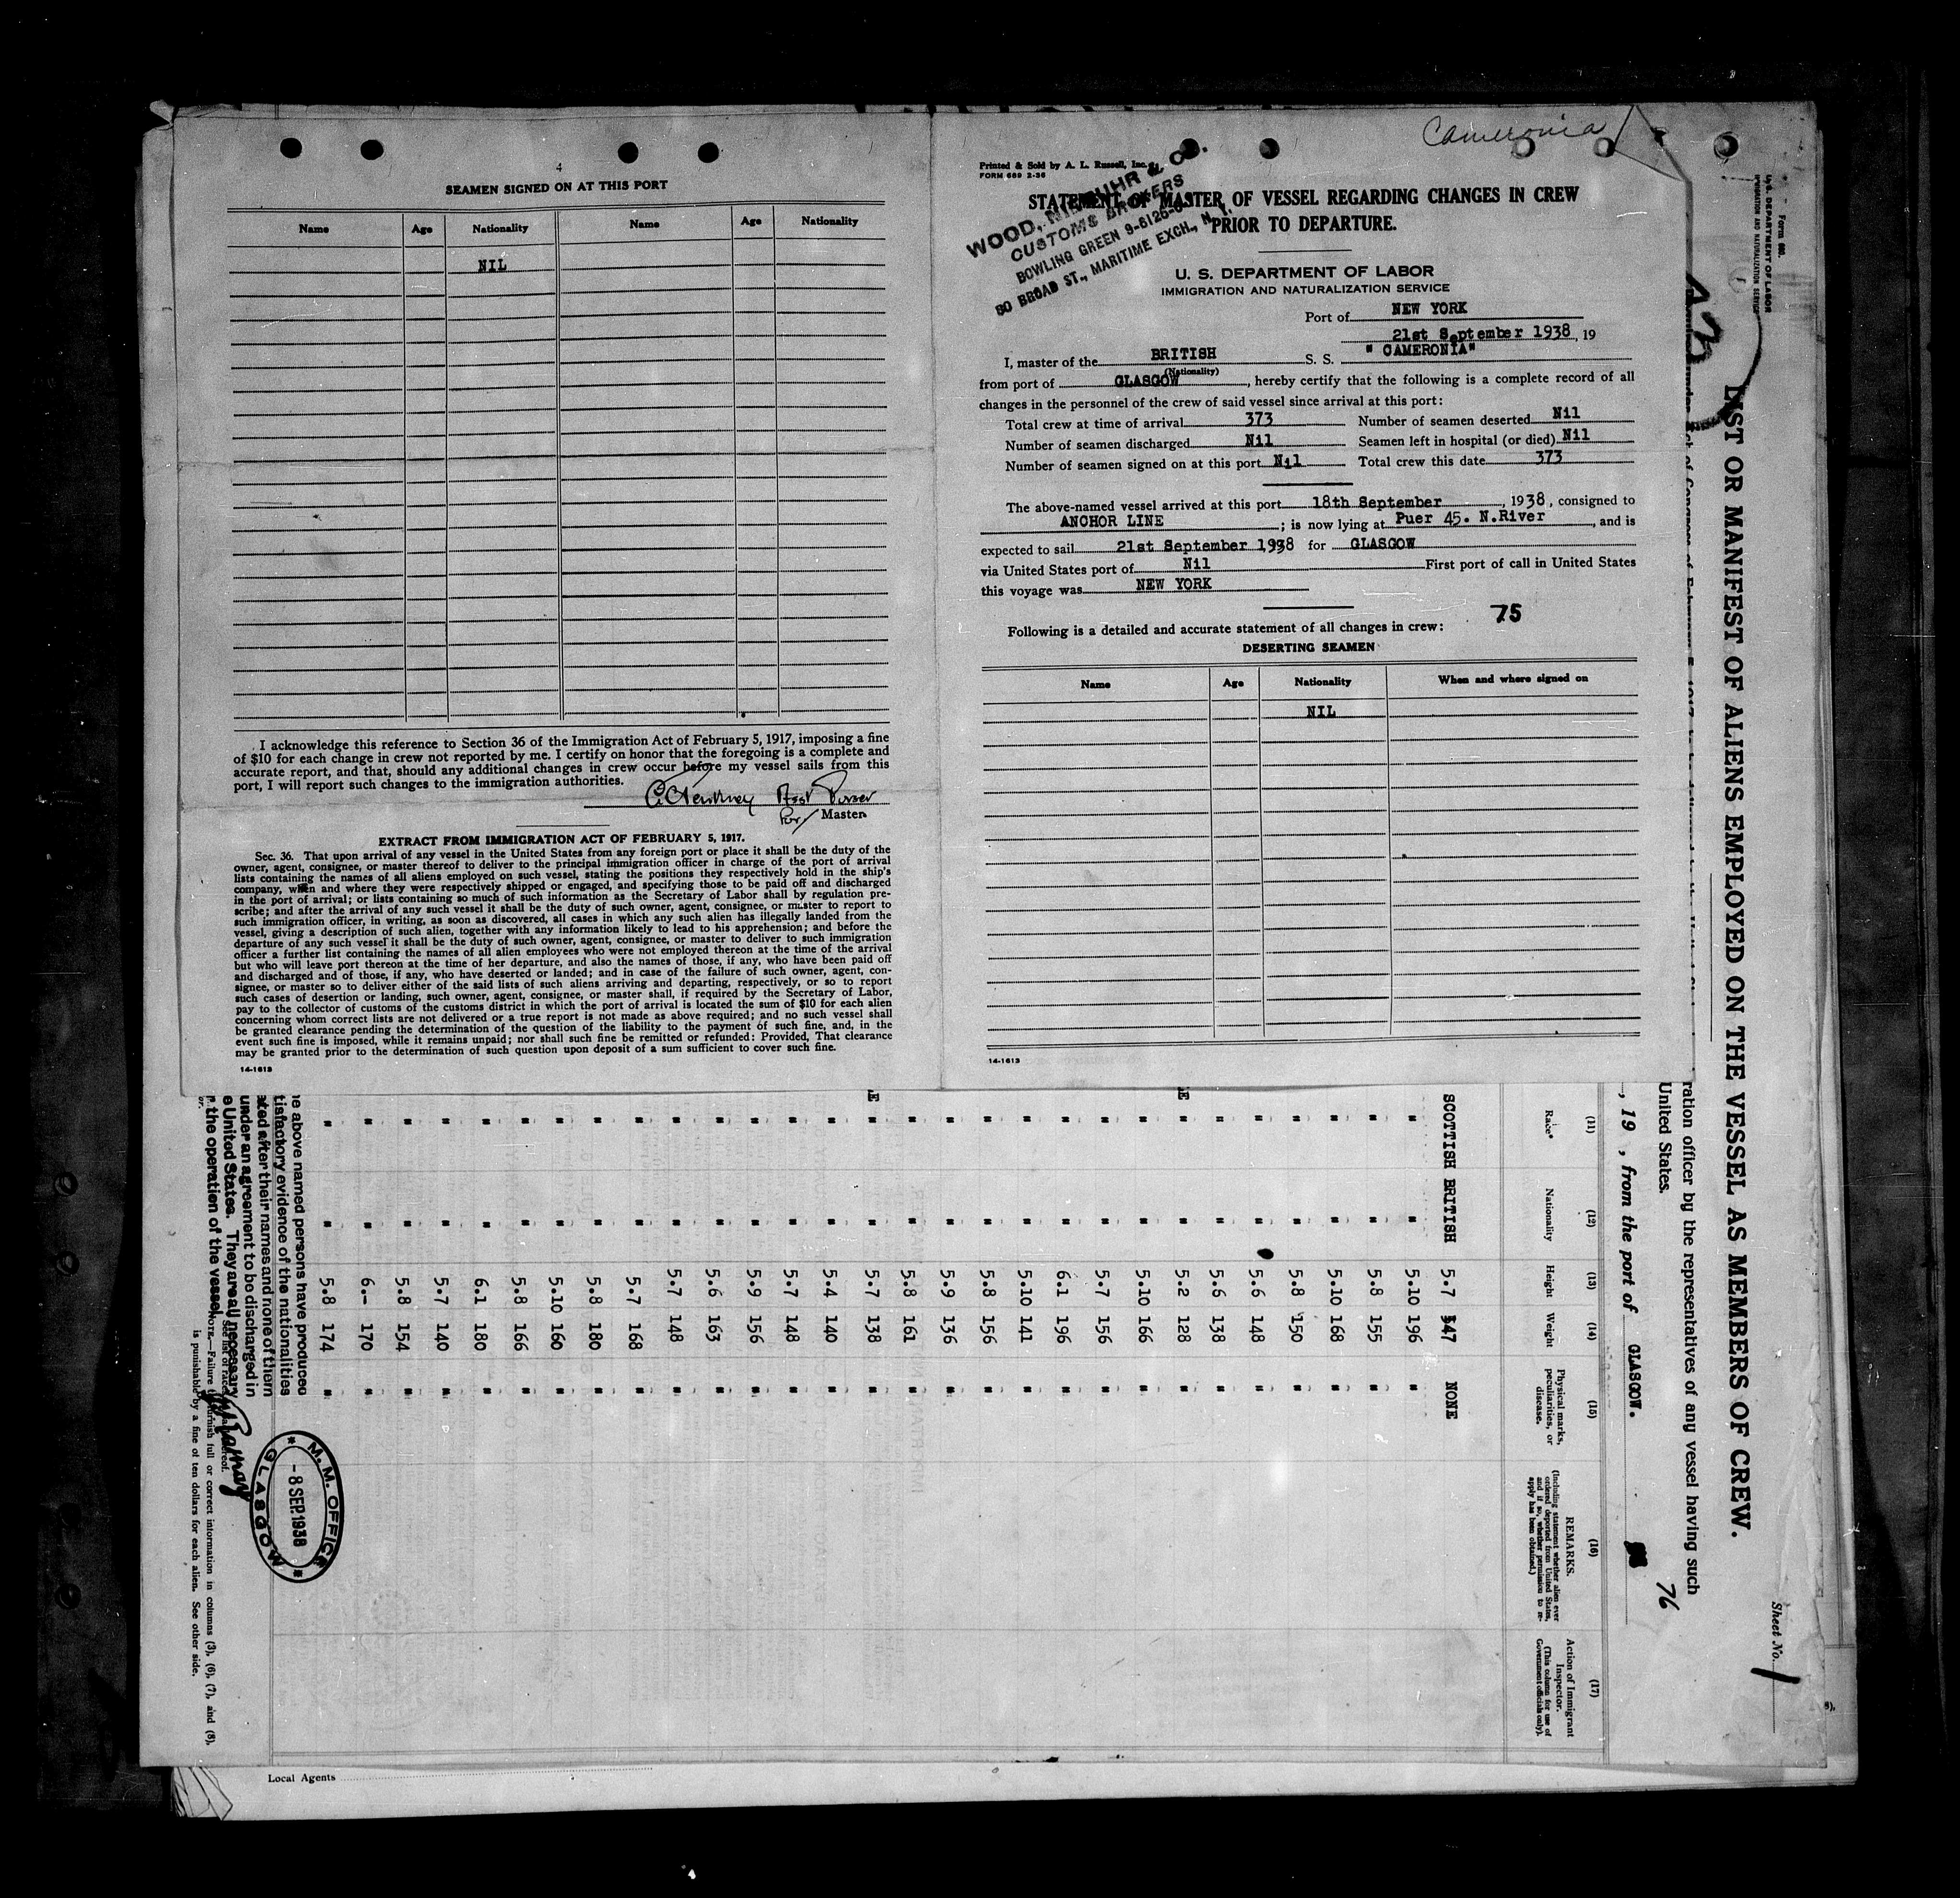 Cameronia
4
SEAMEN SIGNED ON AT THIS PORT
Name Age Nationality Name Age Nationality
NIL
I acknowledge this reference to Section 36 of the Immigration Act of February 5, 1917, imposing a fine
of $10 for each change in crew not reported by me. I certify on honor that the foregoing is a complete and
accurate report, and that, should any additional changes in crew occur before my vessel sails from this
port, I will report such changes to the immigration authorities.
Asst Purser
For/ Master
EXTRACT FROM IMMIGRATION ACT OF FEBRUARY 5, 1917.
Sec. 36. That upon arrival of any vessel in the United States from any foreign port or place it shall be the duty of the
owner, agent, consignee, or master thereof to deliver to the principal immigration officer in charge of the port of arrival
lists containing the names of all aliens employed on such vessel, stating the positions they respectively hold in the ship's
company, when and where they were respectively shipped or engaged, and specifying those to be paid off and discharged
in the port of arrival; or lists containing so much of such information as the Secretary of Labor shall by regulation pre-
scribe; and after the arrival of any such vessel it shall be the duty of such owner, agent, consignee, or master to report to
such immigration officer, in writing, as soon as discovered, all cases in which any such alien has illegally landed from the
vessel, giving a description of such alien, together with any information likely to lead to his apprehension; and before the
departure of any such vessel it shall be the duty of such owner, agent, consignee, or master to deliver to such immigration
officer a further list containing the names of all alien employees who were not employed thereon at the time of the arrival
but who will leave port thereon at the time of her departure, and also the names of those, if any, who have been paid off
and discharged and of those, if any, who have deserted or landed; and in case of the failure of such owner, agent, con-
signee, or master so to deliver either of the said lists of such aliens arriving and departing, respectively, or so to report
such cases of desertion or landing, such owner, agent, consignee, or master shall, if required by the Secretary of Labor,
pay to the collector of customs of the customs district in which the port of arrival is located the sum of $10 for each alien
concerning whom correct lists are not delivered or a true report is not made as above required; and no such vessel shall
be granted clearance pending the determination of the question of the liability to the payment of such fine, and, in the
event such fine is imposed, while it remains unpaid; nor shall such fine be remitted or refunded: Provided, That clearance
may be granted prior to the determination of such question upon deposit of a sum sufficient to cover such fine.
14-1613
Printed & Sold by A. L. Russell, Inc.
FORM 689 2-36
STATEMENT OF MASTER OF VESSEL REGARDING CHANGES IN CREW
PRIOR TO DEPARTURE.
WOOD, NIEBUHR & CO.
CUSTOMS BROKERS
BOWLING GREEN 9-6126
80 BROAD ST., MARITIME EXCH., N. Y.
U. S. DEPARTMENT OF LABOR
IMMIGRATION AND NATURALIZATION SERVICE
Port of NEW YORK
21st September 1938, 19
I, master of the BRITISH S. S. " CAMERONIA"
(Nationality)
from port of GLASGOW, hereby certify that the following is a complete record of all
changes in the personnel of the crew of said vessel since arrival at this port:
Total crew at time of arrival 373 Number of seamen deserted Nil
Number of seamen discharged Nil Seamen left in hospital (or died) Nil
Number of seamen signed on at this port Nil Total crew this date 373
The above-named vessel arrived at this port 18th September, 1938, consigned to
ANCHOR LINE; is now lying at Puer 45. N.River, and is
expected to sail 21st September 1938 for GLASGOW
via United States port of Nil First port of call in United States
this voyage was NEW YORK
75
Following is a detailed and accurate statement of all changes in crew:
DESERTING SEAMEN
Name Age Nationality When and where signed on
NIL
14-1613
Form 680.
U. S. DEPARTMENT OF LABOR
IMMIGRATION AND NATURALIZATION SERVICE
Sheet No. 1
LIST OR MANIFEST OF ALIENS EMPLOYED ON THE VESSEL AS MEMBERS OF CREW.
ration officer by the representatives of any vessel having such
United States.
76
, 19 , from the port of GLASGOW.
(11) (12) (13) (14) (15) (16) (17)
Race* Nationality Height Weight Physical marks, peculiarities, or disease. REMARKS. (Including statement whether alien ever ordered deported from United States, and if so, whether permission to re-apply has been obtained.) Action of Immigrant Inspector. (This column for use of Government officials only).
SCOTTISH BRITISH 5.7 147 NONE
" " 5.10 196 "
" " 5.8 155 "
" " 5.10 168 "
" " 5.8 150 "
" " 5.6 148 "
" " 5.6 138 "
" " 5.2 128 "
" " 5.10 166 "
" " 5.7 156 "
" " 6.1 196 "
" " 5.10 141 "
" " 5.8 156 "
" " 5.9 136 "
" " 5.8 161 "
" " 5.7 138 "
" " 5.4 140 "
" " 5.7 148 "
" " 5.9 156 "
" " 5.6 163 "
" " 5.7 148 "
" " 5.7 168 "
" " 5.8 180 "
" " 5.10 160 "
" " 5.8 166 "
" " 6.1 180 "
" " 5.7 140 "
" " 5.8 154 "
" " 6.- 170 "
" " 5.8 174 "
e above named persons have produced
tisfactory evidence of the nationalities
ated after their names and none of them
under an agreement to be discharged in
e United States. They are all necessary
r the operation of the vessel.
NOTE.—Failure to furnish full or correct information in columns (3), (6), (7), and (8),
is punishable by a fine of ten dollars for each alien. See other side.
M. M. OFFICE
- 8 SEP. 1938
GLASGOW
Local Agents